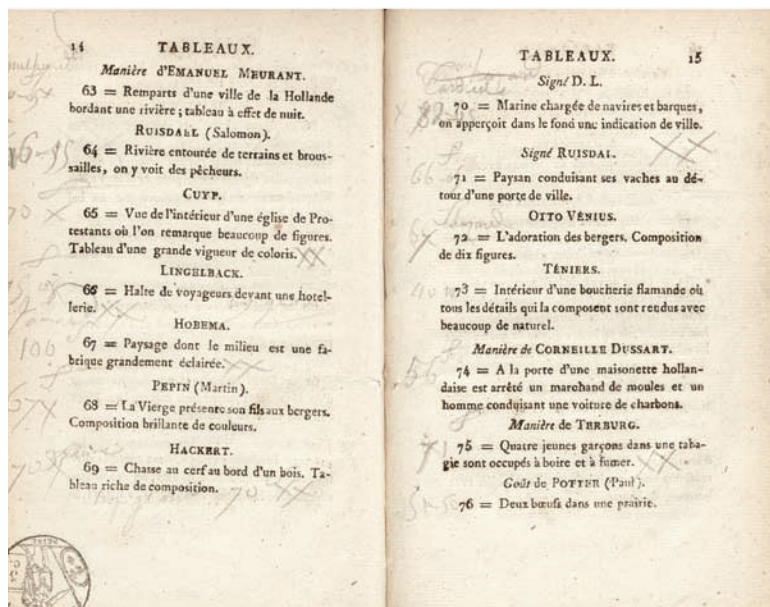 14 TABLEAUX.
Manière d'EMANUEL MEURANT.
63 = Remparts d'une ville de la Hollande
bordant une rivière ; tableau à effet de nuit.
RUISDAEL (Salomon).
64 = Rivière entourée de terrains et brous-
sailles, on y voit des pêcheurs.
CUYP.
65 = Vue de l'intérieur d'une église de Pro-
testants où l'on remarque beaucoup de figures.
Tableau d'une grande vigueur de coloris.
LINGELBACK.
66 = Halte de voyageurs devant une hotel-
lerie.
HOBEMA.
67 = Paysage dont le milieu est une fa-
brique grandement éclairée.
PEPIN (Martin).
68 = La Vierge présente son fils aux bergers.
Composition brillante de couleurs.
HACKERT.
69 = Chasse au cerf au bord d'un bois. Ta-
bleau riche de composition.
70 XX
TABLEAUX. 15
Signé D. L.
70 = Marine chargée de navires et barques,
on apperçoit dans le fond une indication de ville.
Signé RUISDAL.
71 = Paysan conduisant ses vaches au dé-
tour d'une porte de ville.
OTTO VÉNIUS.
72 = L'adoration des bergers. Composition
de dix figures.
TÉNIERS.
73 = Intérieur d'une boucherie flamande où
tous les détails qui la composent sont rendus avec
beaucoup de naturel.
Manière de CORNEILLE DUSSART.
74 = A la porte d'une maisonette hollan-
daise est arrêté un marchand de moules et un
homme conduisant une voiture de charbons.
Manière de TERBURG.
75 = Quatre jeunes garçons dans une taba-
gie sont occupés à boire et à fumer.
Goût de POTTER (Paul).
76 = Deux bœufs dans une prairie.